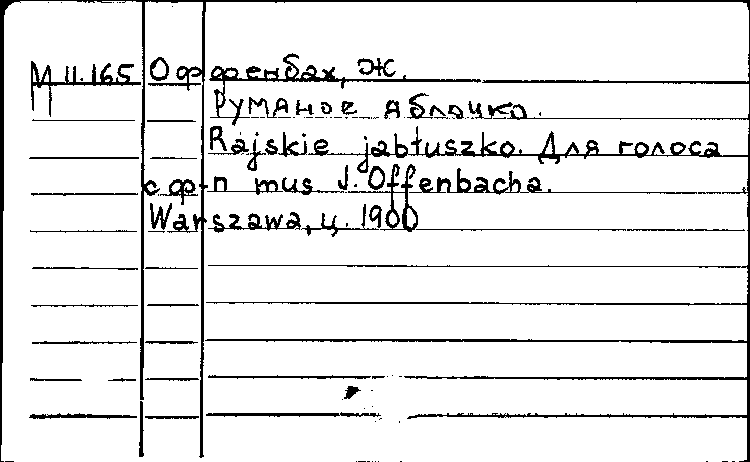 М II.165 Оффенбах, Ж.
Румяное яблочко.
Rajskie jabłuszko. Для голоса
с ф-п mus. J. Offenbacha.
Warszawa, ц. 1900